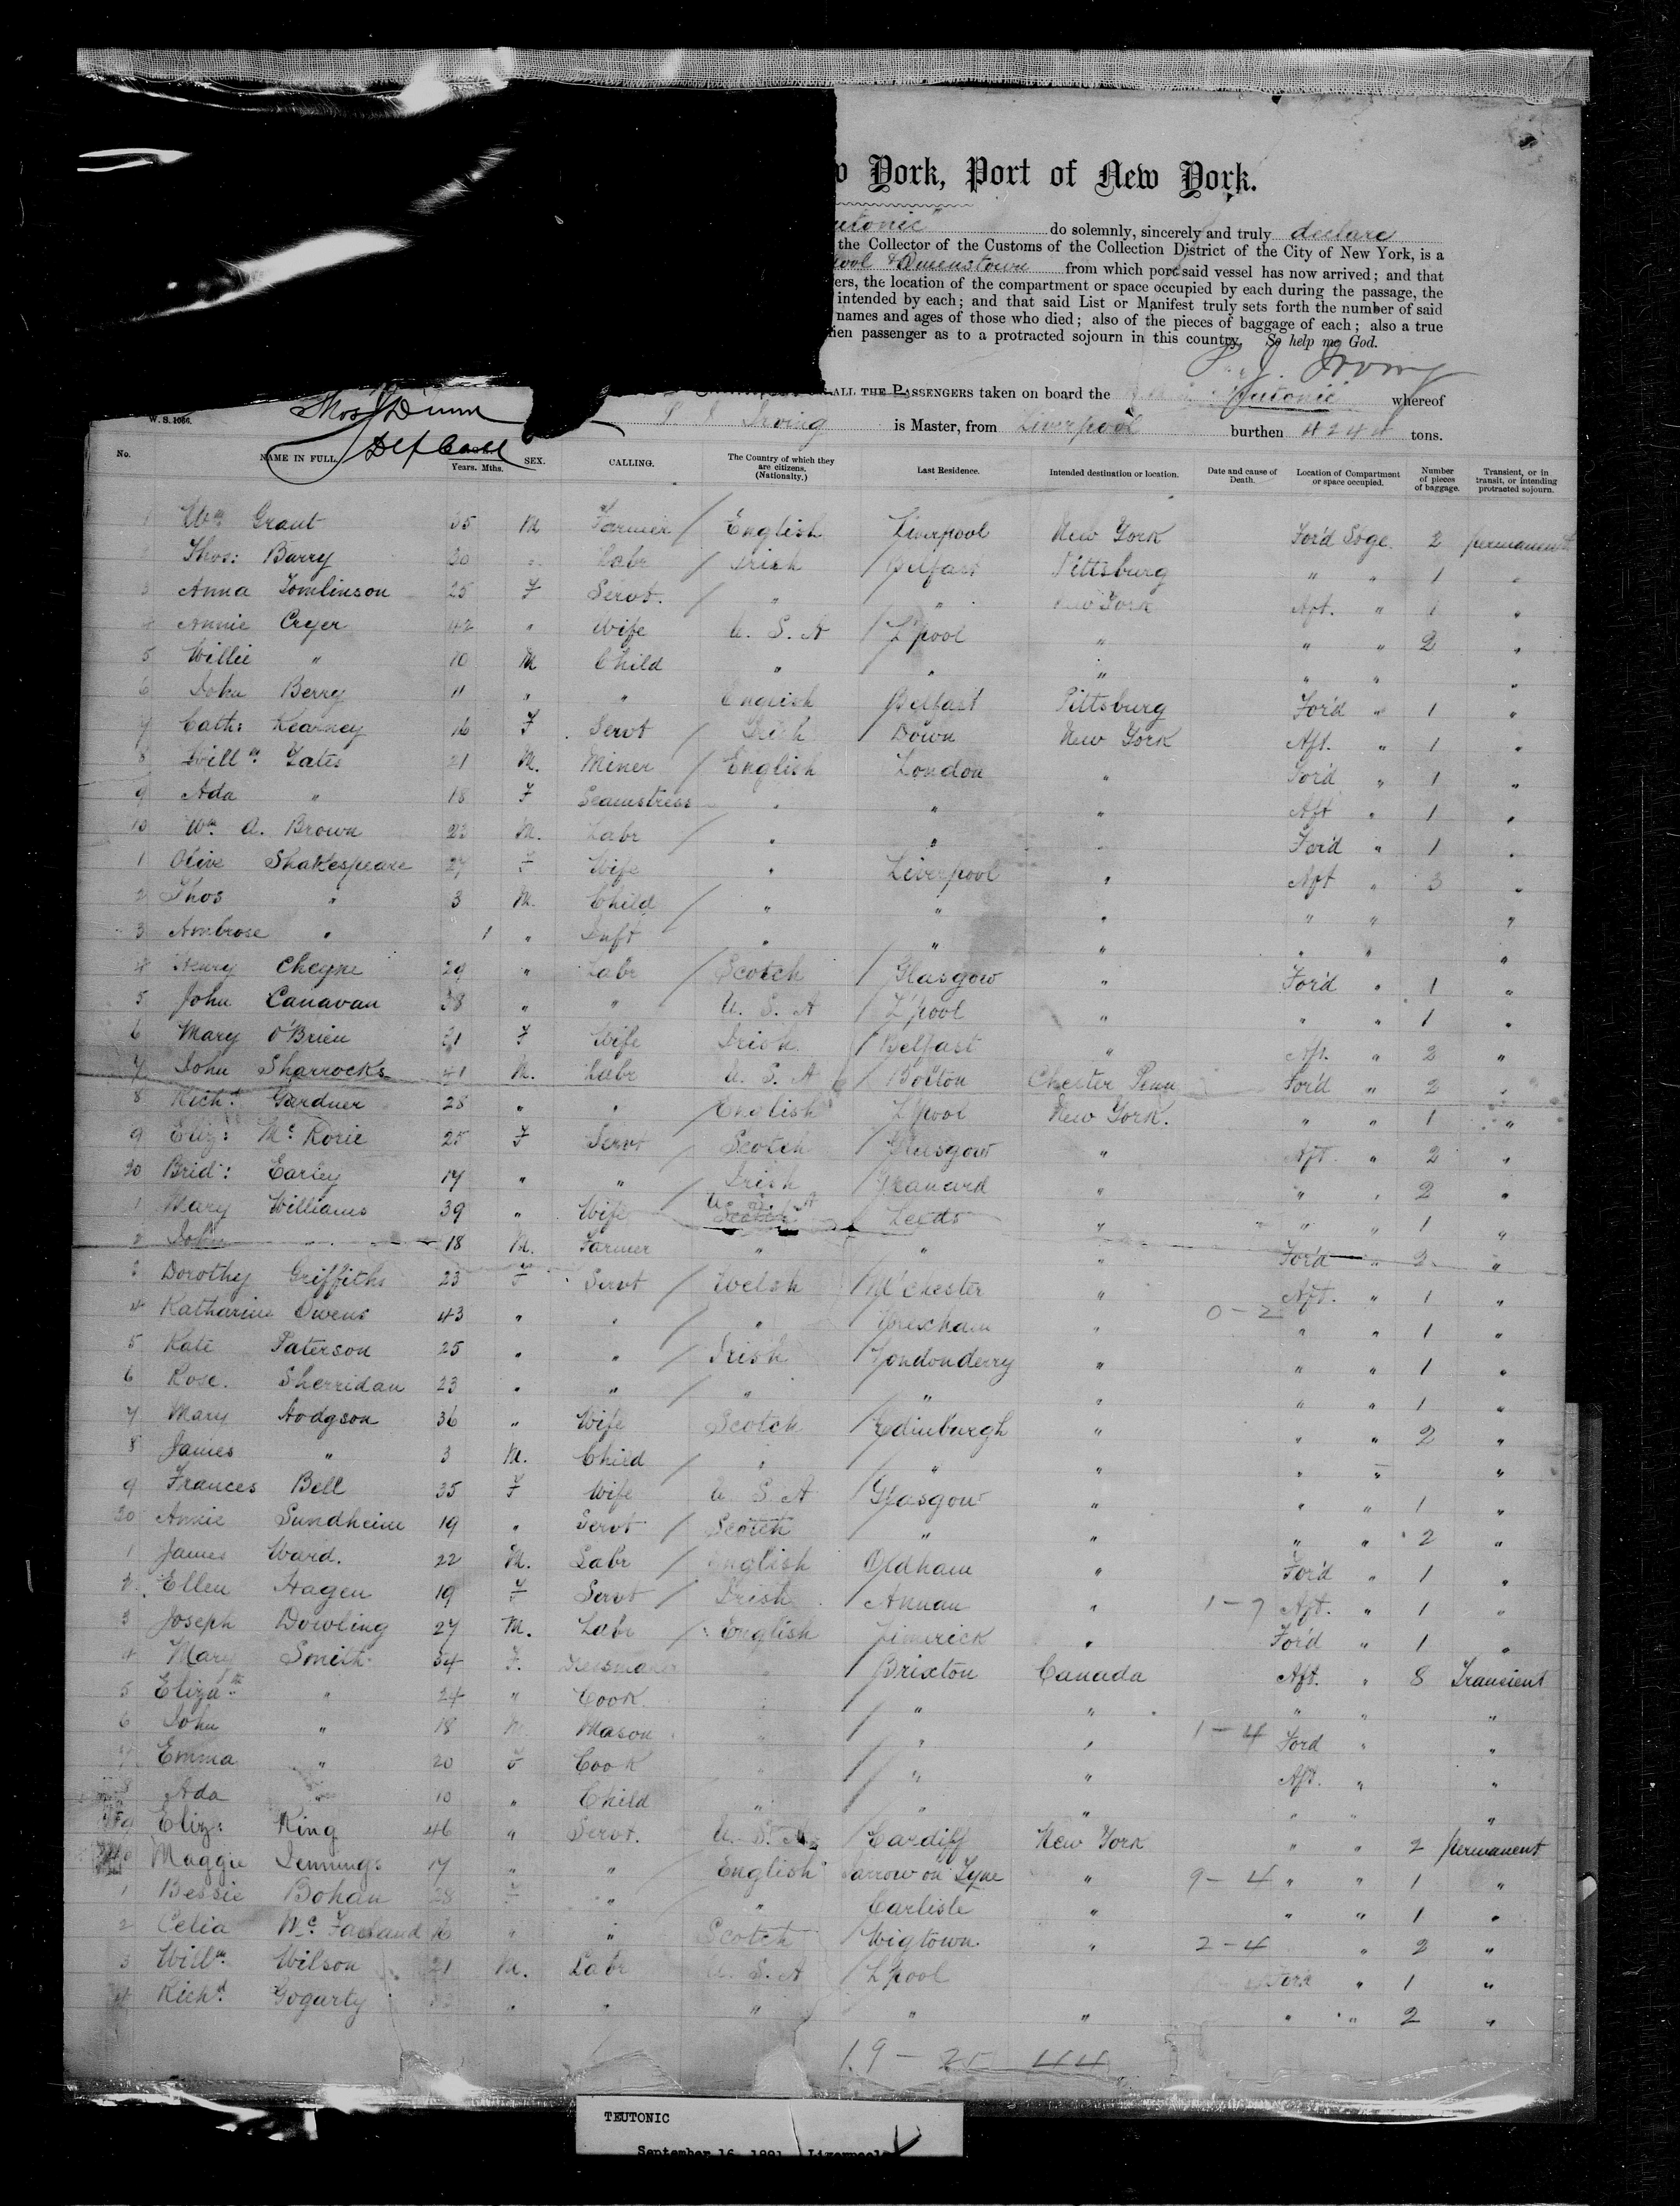 York, Port of New York.
utonic" do solemnly, sincerely and truly declare
the Collector of the Customs of the Collection District of the City of New York, is a
pool & Queenstown from which port said vessel has now arrived; and that
ers, the location of the compartment or space occupied by each during the passage, the
intended by each; and that said List or Manifest truly sets forth the number of said
names and ages of those who died; also of the pieces of baggage of each; also a true
ien passenger as to a protracted sojourn in this country. So help me God.
P. J. Irving
ALL THE PASSENGERS taken on board the Teutonic whereof
W. S. 1066. Thos J Dunn
P. J. Irving is Master, from Liverpool burthen 4244 tons.
No. NAME IN FULL. Years. Mths. SEX. CALLING. The Country of which they are citizens, (Nationality.) Last Residence. Intended destination or location. Date and cause of Death. Location of Compartment or space occupied. Number of pieces of baggage. Transient, or in transit, or intending protracted sojourn.
1 Wm Grant 35 M Farmer / English Liverpool New York For'd Stge. 2 permanent
Thos: Barry 20 " Labr / Irish / Belfast Pittsburg " " 1 "
3 Anna Tomlinson 25 F Servt. / " " New York Aft. " 1 "
4 Annie Cryer 42 " Wife U. S. A / L'pool " " " 2 "
5 Willie " 10 M Child " " " " " "
6 John Berry 11 " " English Belfast Pittsburg For'd " 1 "
7 Cath: Kearney 16 F Servt / Irish Down New York Aft. " 1 "
8 Willm Yates 21 M. Miner / English London " For'd " 1 "
9 Ada " 18 F Seamstress " " " Aft " 1 "
10 Wm A. Brown 22 M. Labr / " " " For'd " 1 "
1 Olive Shakespeare 27 F Wife " Liverpool " Aft " 3 "
2 Thos " 3 M. Child / " " " " " "
3 Ambrose " 1 " Inft " " " " " "
4 Henry Cheyne 29 " Labr / Scotch / Glasgow " For'd " 1 "
5 John Canavan 38 " " U. S. A / L'pool " " " 1 "
6 Mary O'Brien 21 F Wife Irish / Belfast " Aft. " 2 "
7 John Sharrocks 41 M. Labr U. S. A / Bolton Chester Penn For'd " 2 "
8 Richd Gardner 28 " " / English L'pool New York. " " 1 "
9 Eliz: Mc Rorie 25 F Servt Scotch / Glasgow " Aft. " 2 "
20 Brid: Earley 17 " " Irish / Granard " " " 2 "
1 Mary Williams 39 " Wife U. S. A Leeds " " " 1 "
2 John " 18 M. Farmer " " " For'd " 2 "
3 Dorothy Griffiths 23 F Servt / Welsh / M'chester " Aft. " 1 "
4 Katharine Owens 43 " " " / Wrexham " 0 - 2 " " 1 "
5 Kate Paterson 25 " " / Irish / Londonderry " " " 1 "
6 Rose. Sherridan 23 " " / " " " " " 1 "
7 Mary Hodgson 36 " Wife Scotch / Edinburgh " " " 2 "
8 James " 3 M. Child / " / " " " " "
9 Frances Bell 35 F Wife U S. A / Glasgow " " " 1 "
30 Annie Sundheim 19 " Servt / Scotch " " " " 2 "
1 James Ward. 22 M. Labr / English Oldham " For'd " 1 "
2 Ellen Hagen 19 F Servt / Irish / Annan " 1 - 7 Aft. " 1 "
3 Joseph Dowling 27 M. Labr / English / Limerick " For'd " 1 "
4 Mary Smith 54 F. Dressmaker / Brixton Canada Aft. " 8 Transient
5 Elizath " 24 " Cook / " " " " "
6 John " 18 M. Mason / " " 1 - 4 Ford " "
7 Emma " 20 F Cook " / " " Aft. " "
8 Ada " 10 " Child " " " " " "
9 Eliz: King 46 " Servt. U. S. A / Cardiff New York " " 2 permanent
40 Maggie Jennings 17 " " English Jarrow on Tyne " 9 - 4 " " 1 "
1 Bessie Bohan 28 F " " Carlisle " " " 1 "
2 Celia Mc Farland 16 " " Scotch / Wigtown " 2 - 4 " 2 "
3 Willm Wilson 21 M. Labr U. S. A / L'pool For'd " 1 "
4 Richd Gogarty " " " " " " " 2 "
19 - 25 44
TEUTONIC
September 16, 1891 Liverpool